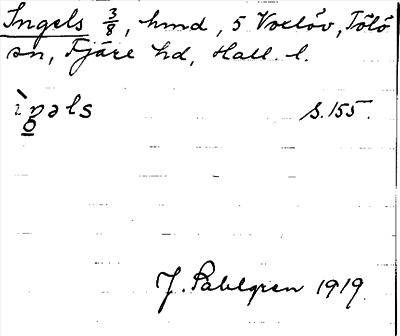 Ingels 3/8, hmd, 5 Voxlöv, Tölö
sn, Fjäre hd, Hall. l.
ìŋəls s. 155.
J. Pahlgren 1919.